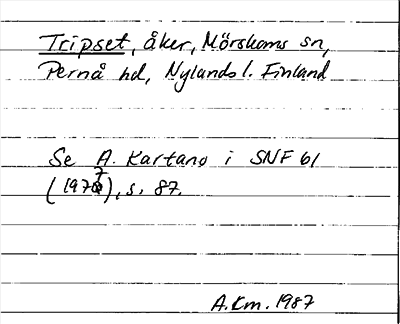 Tripset, åker, Mörskoms sn,
Pernå hd, Nylands l. Finland
Se A. Kartano i SNF 61
(1977), s. 87.
A.Km. 1987